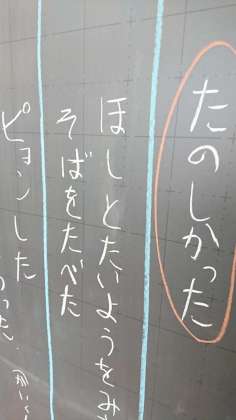 たのしかった
ほしとたいようをみ
そばをたべた
ピョンした